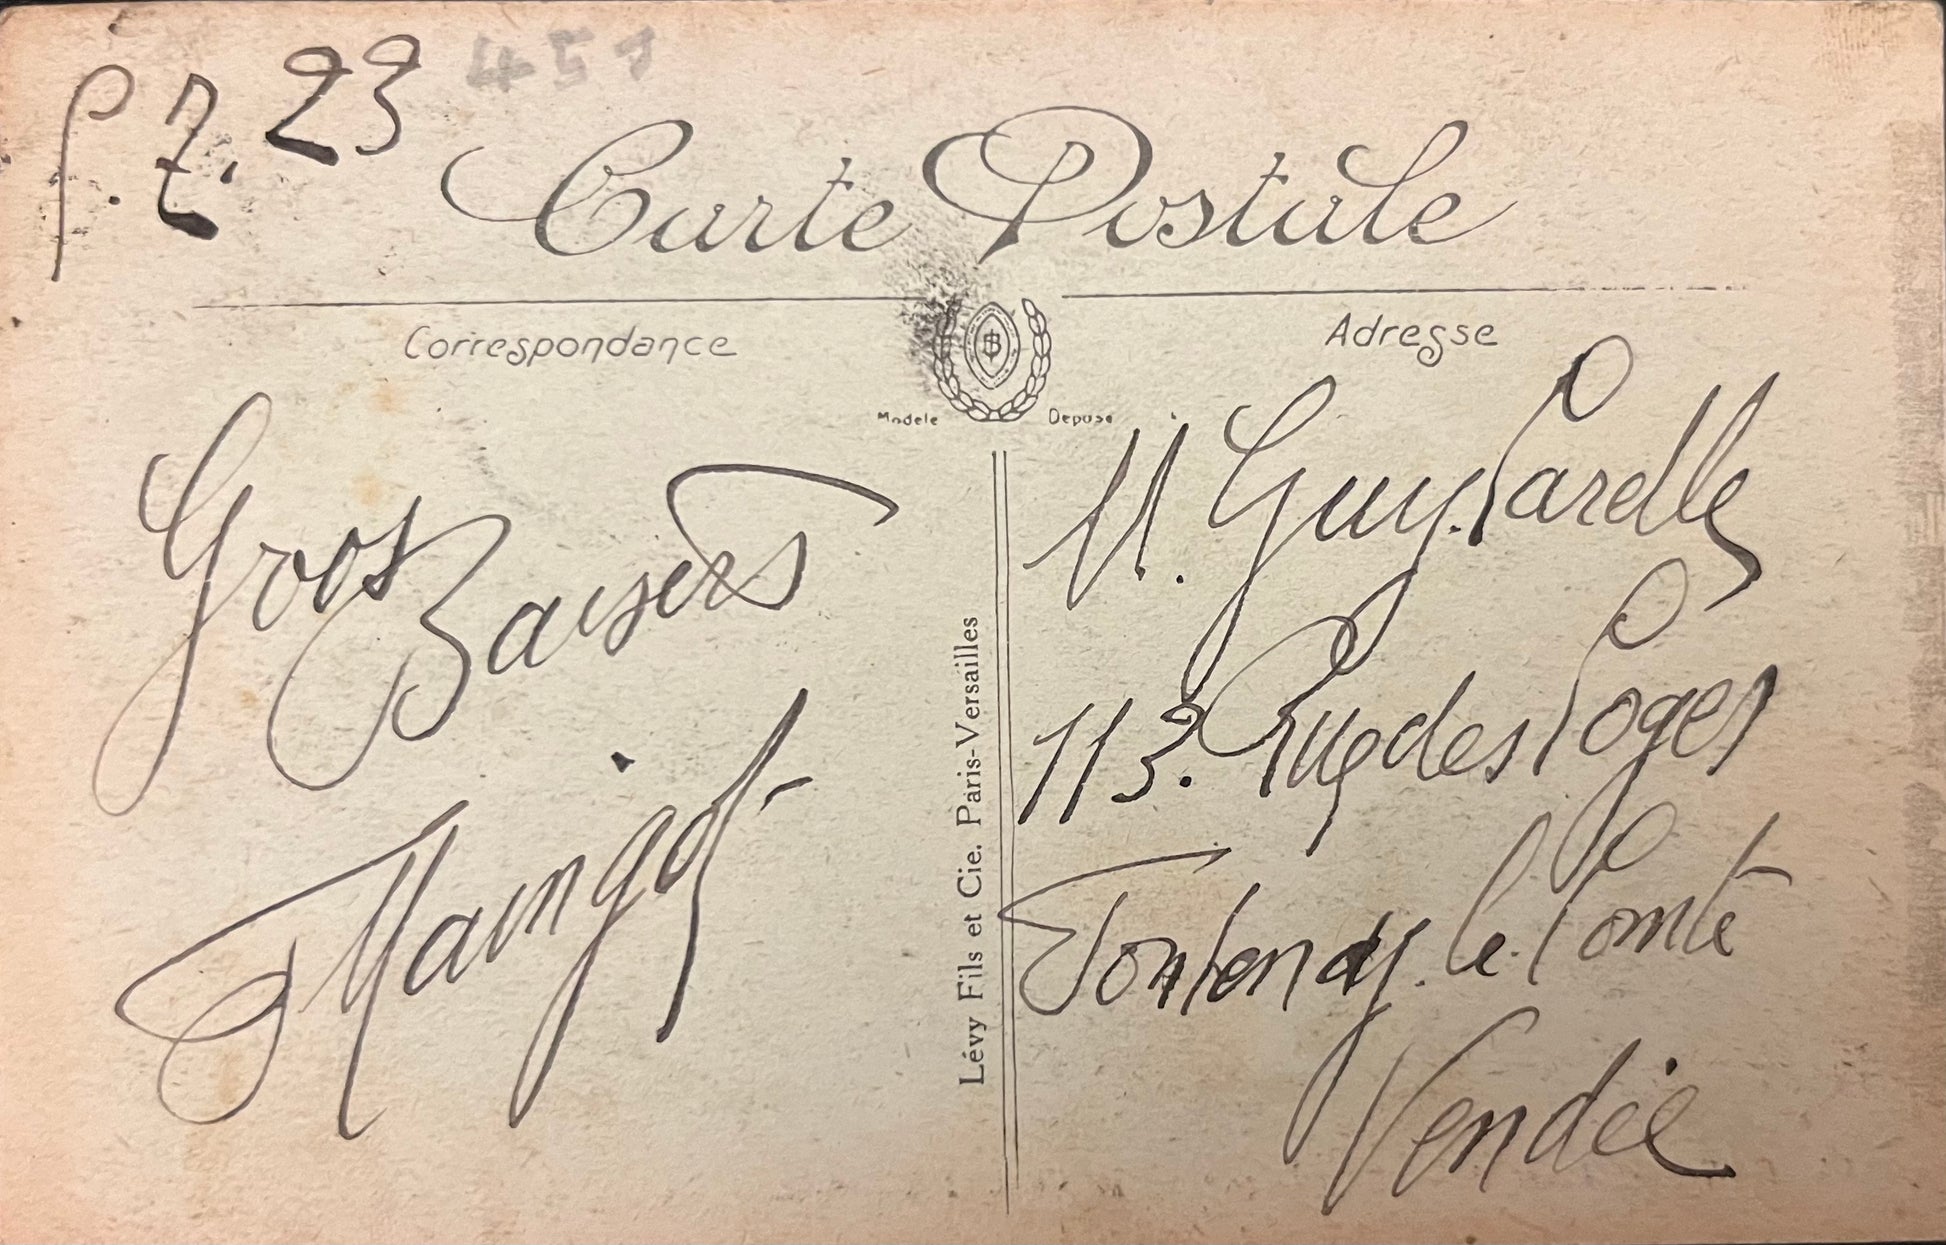 7. 23
451
Carte Postale
Correspondance
Adresse
Modèle Déposé
Gros
Baisers
Maingot
Lévy Fils et Cie. Paris-Versailles
M. Guy.
113. Rue des Loges
Fontenay. le. Comte
Vendée